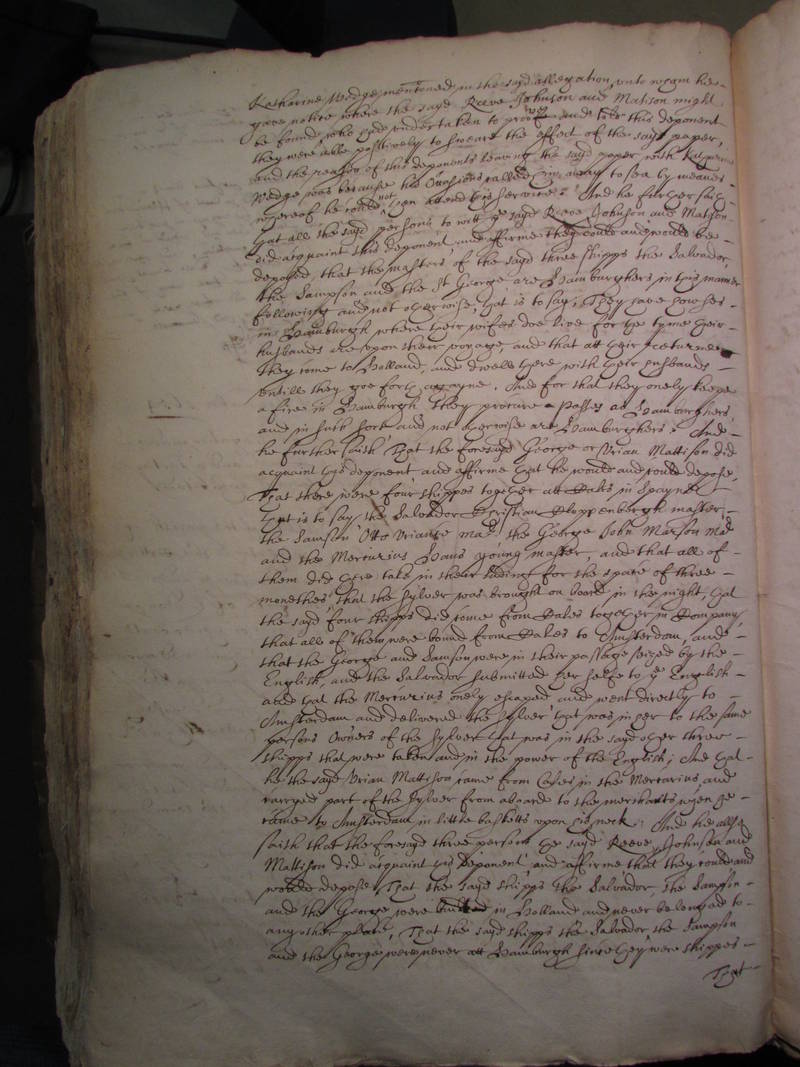 Katharine Wedge mentoned in the sayd allegation, unto whom hee
gave notice where the sayd Reeve Johnson and Matison might
be found, who had undertaken to prove and told this deponent
they were able positively to sweare the effect of the sayd paper,
and the reason of this deponents leaving the sayd paper with Katharine
Wedge was because his businesse called him away to sea by meanes
whereof he could not then attend this service. And he further saith
that all the sayd persons to witt the sayd Reeve Johnson and Matison
did acquaint this deponent and affirme they could and would be
deposed, that the masters of the sayd three shipps the Salvador,
the Sampson and the St George are Hamburghers in this manner
following and not otherwise, that is to say, They have howses
in Hamburgh where their wifes doe live for the tyme their
husbands are upon their voyage, and that att their returne
they come to Holland, and dwell there with their husbands
untill they goe forth againe. And for that they onely keepe
a fire in Hamburgh they procure Passes as Hamburghers,
and in such sort and not otherwise are Hamburghers. And
he further saith That the foresayd George or Brian Mattison did
acquaint this deponent and affirme that he would and could depose,
That there were four shippes together att Cales in Spayne
that is to say, the Salvador Christian Cloppenburgh master,
the Samson Otto Briance mar, the George John Marson mar
and the Mercurius Hans young master, and that all of
them did there take in their lading for the space of three
monethes, that the sylver was brought on board in the night, that
the sayd four shipps did come from Cales together in Company,
that all of them were bound from Cales to Amsterdam, and
that the George and Samson were in their passage seized by the
English, and the Salvador submitted her selfe to the English
and that the Mercurius onely escaped and went directly to
Amsterdam and delivered the sylver that was in her to the same
persons Owners of the sylver that was in the sayd other three
shipps that were taken and in the power of the English; And that
he the sayd Brian Mattison came from Cales in the Mercurius and
carryed part of the sylver from aboard to the merchants when he
came to Amsterdam in little basketts upon his neck. And he allso
saith that the foresayd three persons the sayd Reeve, Johnson and
Mattison did acquaint this deponent and affirme that they could and
would depose That the sayd shipps the Salvador, the Sampson
and the George were in Holland and never belonged to
any other place, That the sayd shipps the Salvador the Sampson
and the George were never att Hamburgh since they were shippes
That